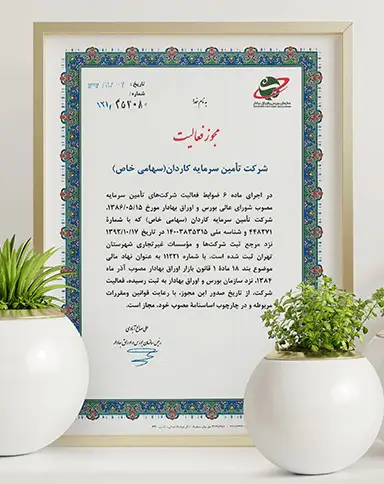 بنام خدا
تاریخ :
شماره :
۱۲۱/۲۵۲۰۸۰
سازمان بورس و اوراق بهادار
مجوز فعالیت
شرکت تأمین سرمایه کاردان(سهامی خاص)
در اجرای ماده ۶ ضوابط فعالیت شرکت‌های تأمین سرمایه
مصوب شورای عالی بورس و اوراق بهادار مورخ ۱۳۸۶/۰۵/۱۵،
شرکت تأمین سرمایه کاردان (سهامی خاص) که با شمارۀ
۴۴۸۲۷۱ و شناسه ملی ۱۴۰۰۳۸۳۵۳۱۵ در تاریخ ۱۳۹۲/۱۰/۱۷
نزد مرجع ثبت شرکت‌ها و مؤسسات غیرتجاری شهرستان
تهران ثبت شده است. با شماره ۱۱۲۲۱ به عنوان نهاد مالی
موضوع بند ۱۸ ماده ۱ قانون بازار اوراق بهادار مصوب آذر ماه
۱۳۸۴، نزد سازمان بورس و اوراق بهادار به ثبت رسیده، فعالیت
شرکت، از تاریخ صدور این مجوز، با رعایت قوانین ومقررات
مربوطه و در چارچوب اساسنامۀ مصوب خود، مجاز است.
علی صالح آبادی
رئیس سازمان بورس و اوراق بهادار